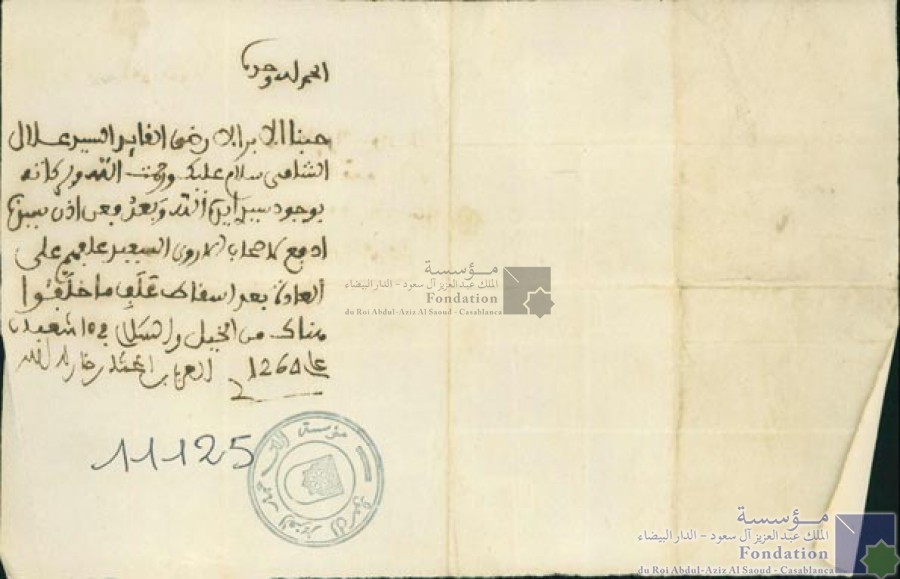 الحمد لله وحده
محبنا الأبر الأرضى القايد السيد علال
الشامي سلام عليك ورحمت الله وبركاته
بوجود سيدنا أيده الله وبعد فعن إذن سيدنا
ادفع لأصحاب الأروى السعيد علفهم على
العادة بعد إسقاط علف ما خلفوا
هناك من الخيل والسلام في 15 شعبان
عام 1264 العربي بن المختار خار الله
11125
مؤسسة
الملك عبد العزيز آل سعود - الدار البيضاء
Fondation
du Roi Abdul-Aziz Al Saoud - Casablanca
مؤسسة الملك عبد العزيز آل سعود
مؤسسة
الملك عبد العزيز آل سعود - الدار البيضاء
Fondation
du Roi Abdul-Aziz Al Saoud - Casablanca